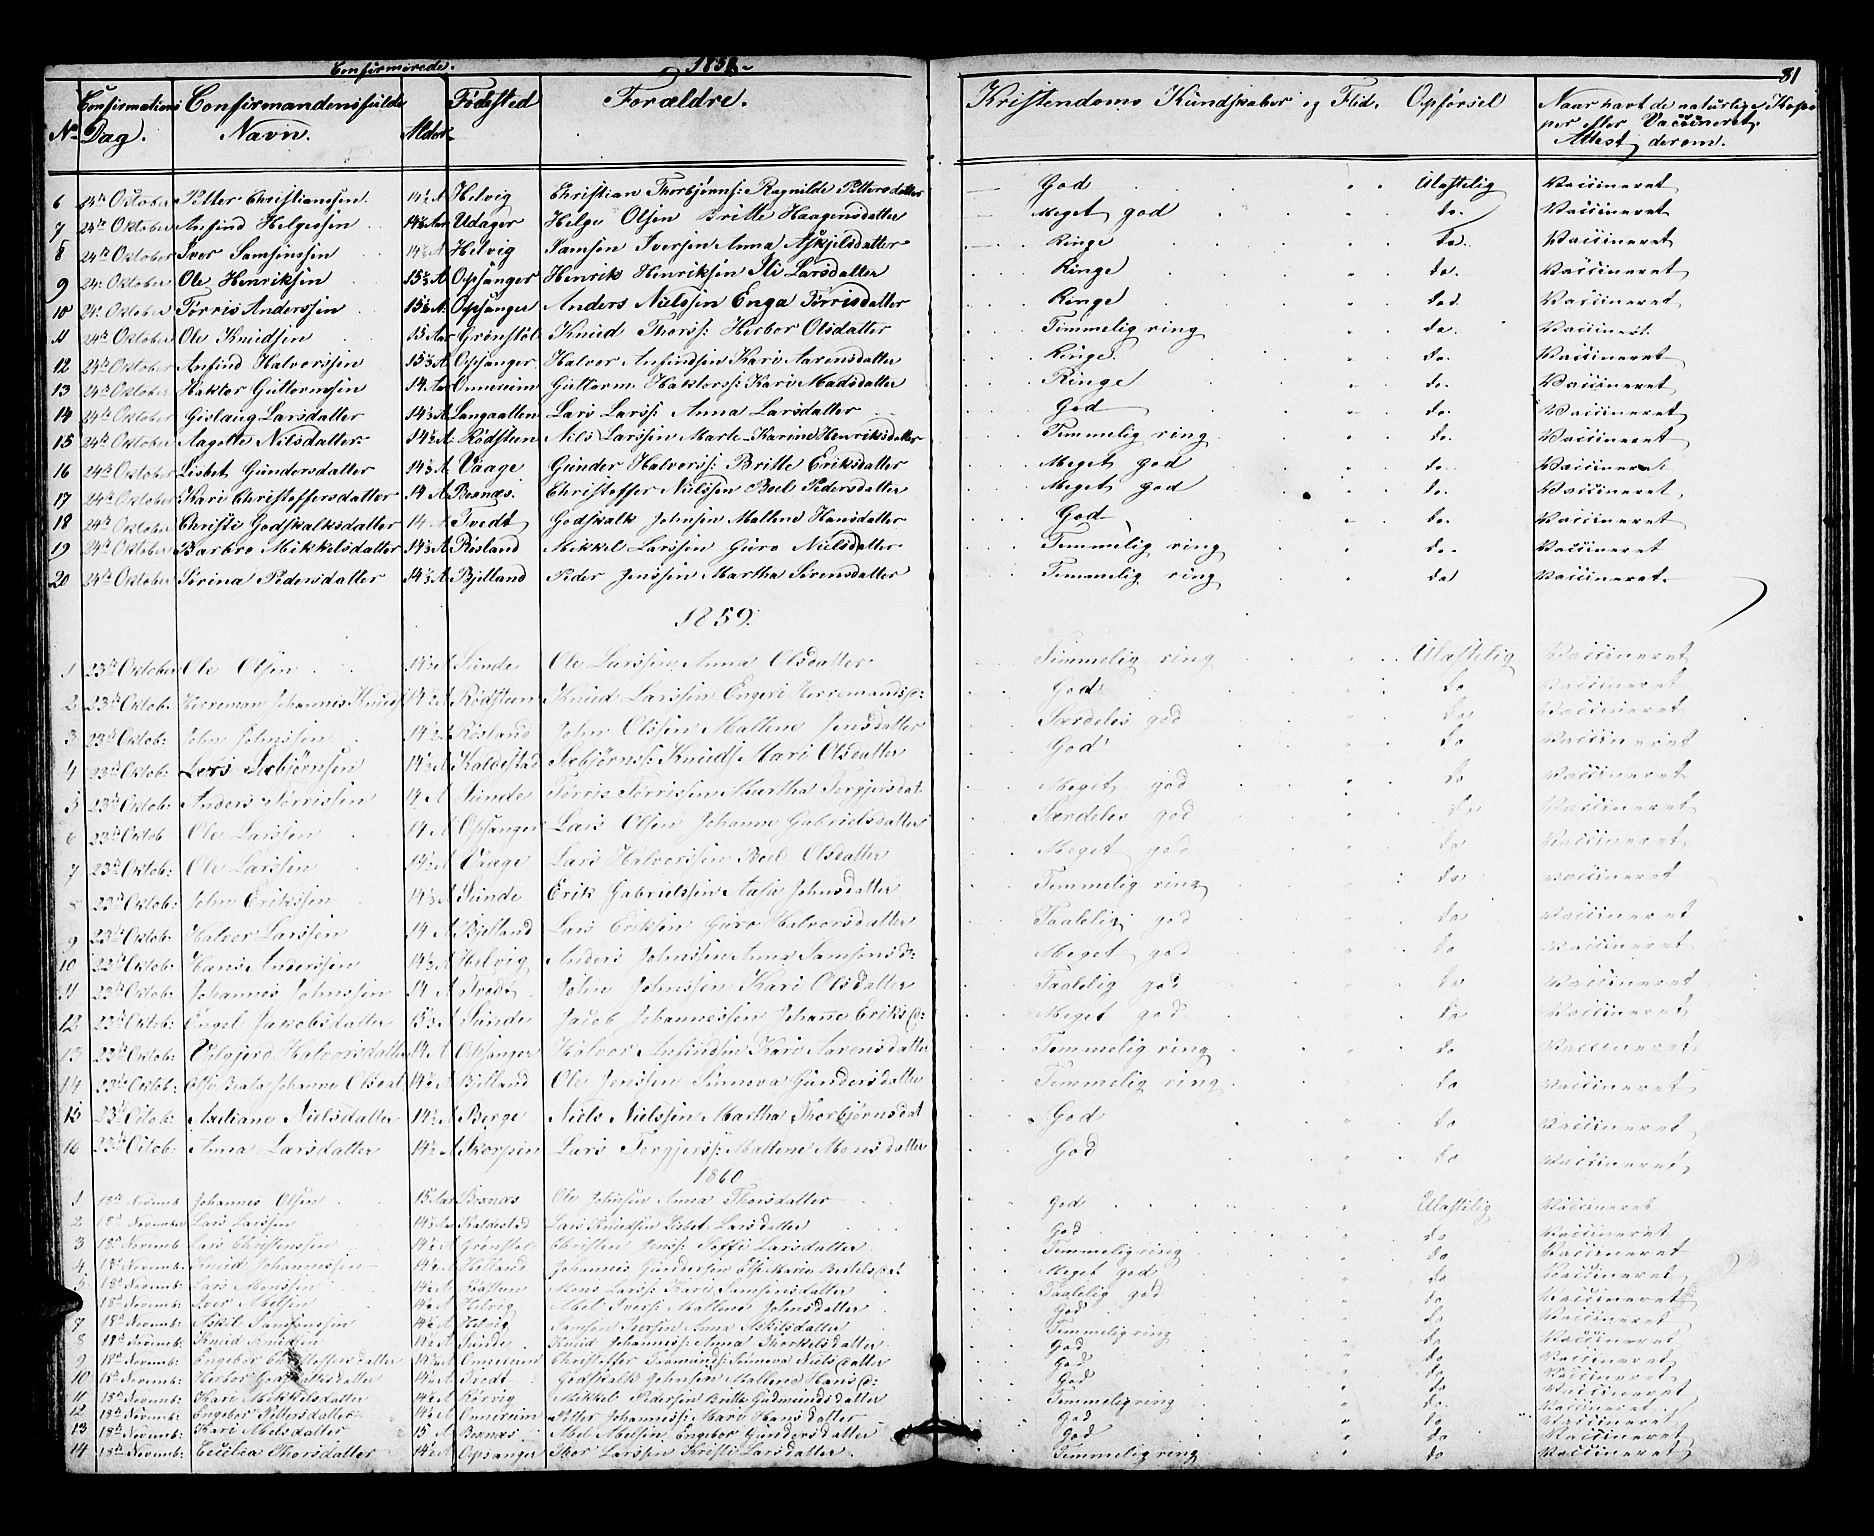 Confirmerede. 1858. 81
No Confirmations Dag. Confirmandens fulde Navn. Alder Födested Forældre. Kristendoms Kundskaber og Flid. Opførsel Naar havt de naturlige Kopper eller Vaccineret. Attest derom.
6 24de October Petter Christianssen 14½ A Helvig Christian Thorbjörns: Ragnilde Pettersdatter God Ulastelig Vaccineret
7 24de Oktober Anfind Helgessen 14½ Aar Udager Helge Olsen Britte Haagensdatter Meget god do. Vaccineret
8 24de Oktober Iver Samsonssen 14½ A Helvig Samson Iversen Anna Askjelsdatter Ringe do. Vaccineret
9 24 Oktober Ole Henriksen 15½ A Opsanger Henrik Henriksen Larsdatter Ringe do. Vaccineret
10 24 Oktober Torris Anderssen 15½ A. Opsanger Anders Nielssen Enga Torrisdatter Ringe do. Vaccineret
11 24de Oktober Ole Knudsen 15 Aar Grönstöl Knud Thorss: Herbor Olsdatter Temmelig ring do. Vaccineret.
12 24de Oktober Anfind Halverssen 15½ A Opsanger Halvor Anfindsen Kari Aarensdatter Ringe. do. Vaccineret
13 24de Oktober Haktor Guttormsen 14 Aar Onnereim Guttorm Haktorss: Kari Madsdatter Ringe do. Vaccineret
14 24de Oktober Gislaug Larsdatter 14½ A Langaatten Lars Larss: Anna Larsdatter God do. Vaccineret
15 24de Oktober Aagotte Nilsdatter 14½ A. Rödsten Nils Larssen Marte Karine Henriksdatter Temmelig ring do. Vaccineret
16 24de Oktober Lisbet Gundersdatter 14½ A Vaage Gunder Halverss: Britte Eriksdatter Meget god do. Vaccineret
17 24de Oktober Kari Christoffersdatter 14 A Bosnæs. Christoffer Nielssen Boel Pedersdatter Meget god do. Vaccineret
18 24de Oktober Christi Godskalksdatter 14 A Tvedt Godskalk Johnsen Maltene Hansdatter God do. Vaccineret
19 24de Oktober Barbro Mikkelsdatter 14½ A Røsland Mikkel Larssen Guro Nielsdatter Temmelig ring do. Vaccineret
20 24de Oktober Serina Pedersdatter 14½ A Bjelland Peder Jenssen Martha Sörensdatter Temmelig ring do Vaccineret.
1859.
1 23de Oktober Ole Olsen 14½ A Sunde Ole Larssen Anna Olsdatter Temmelig ring Ulastelig Vaccineret
2 23de Oktob. Herreman Johannes Knuds 14½ A Rödsteen Knud Larssen Engeri Herremandsd: God do Vaccineret
3 23de Oktob: John Johnssen 14½ A Røsland John Olssen Maltene Jensdatter Særdeles god do Vaccineret
4 23de Oktob: Lars Sæbjörnsen 14½ A Kaldestad Sæbjörns: Knuds: Mari Olsdatter God do Vaccineret
5 23de Oktob: Anders Torrissen 14 A Sunde Torris Torrissen Martha Torgjersdat. Meget god do Vaccineret
6 23de Oktob Ole Larssen 14 A Opsanger Lars Olsen Johanne Gabrielsdatter Særdeles god do Vaccineret
7 23de Oktob: Ole Larssen 14½ A Vaage Lars Halverssen Boel Olsdatter Meget god do Vaccineret
8 23de Oktob: John Erikssen 14½ A Sunde Erik Gabrielssen Aasa Johnsdatter Temmelig ring do Vaccineret
9 23de Oktob: Halvor Larssen 14 A Bjelland Lars Eriksen Guro Halvorsdatter Taalelig god do Vaccineret
10 23de Oktob: Hans Anderssen 14½ A Helvig Anders Johnssen Anna Samsonsd: Meget god do Vaccineret
11 23de Oktob: Johannes Johnssen 14 A Tvedt John Johnssen Kari Olsdatter Taalelig god do Vaccineret
12 23de Oktob: Engel Jakobsdatter 15½ A Sunde Jacob Johannessen Johanne Eriksd: Meget god do Vaccineret
13 23de Oktob: Valgjerd Halvorsdatter 14 A Opsanger Halvor Anfindsen Kari Aarensdatter Temmelig ring do Vaccineret
14 23de Oktob: Beata Johanne Olsdat 14½ A Bjelland Ole Jenssen Sinneva Gundersdatter Temmelig ring do Vaccineret
15 23de Oktob: Axeliane Nielsdatter 14½ A Berge Niels Nielssen Martha Thorbjörnsdat God do Vaccineret
16 23de Oktob: Anna Larsdatter 14½ A Skorpen Lars Torgjers: Maltene Monsdatter God do Vaccineret
1860
1 18de Novemb Johannes Olsen 15 Aar Bosnæs Ole Johnsen Anna Thorsdatter God Ulastelig Vaccineret
2 18de November Lars Larssen 14½ Aar Kaldestad Lars Knudsen Lisbet Larsdatter God do Vaccineret
3 18de Novemb Lars Christenssen 14½ A Grönstöl Christen Jenss: Soffi Larsdatter Temmelig ring do Vaccineret
4 18de Novemb Knud Johannessen 14½ A Helland Johannes Gundersen Else Marie Bertelsdat Meget god do Vaccineret
5 18de Novemb: Lars Monssen 14½ A Mons Larss: Kari Samsonsdatter Taalelig god do Vaccineret
18de Novemb: Iver Abelsen 14½ A Helvig Abel Ivers: Maltene Johnsdatter God do Vaccineret
7 18de Novemb: Askil Samsonssen 14½ A Helvig Samson Iversen Anna Askilsdatter Temmelig ring do Vaccineret
8 18de Novemb: Knud Knudsen 14½ A Sunde Knud Johanness: Anna Thorkelsdatter God do Vaccineret
9 18de Novemb: Engebor Christoffersdatter 14½ A Onnereim Christoffer Sinneva Nielsdatter God do Vaccineret
10 18de Novemb: Herbor Godskalksdatter 14½ A Tvedt Godskalk Johnsen Maltene Hansd: God do Vaccineret
11 18de Novemb: Kari Mikkelsdatter 14½ A Rörvig Mikkel Pedersen Britte Gudmundsdatter Temmelig ring do Vaccineret
12 18de Novemb: Engebor Pettersdatter 14½ A Onnereim Petter Johanness: Mari Hansdatter God do Vaccineret
13 18de Novemb: Kari Abelsdatter 15 A Bosnæs Abel Abelsen Engebor Gundersdatter God do Vaccineret
14 18de Novemb: Cecilia Thorsdatter 14½ A Opsanger Thor Larssen Kristi Larsdatter. Temmelig ring do Vaccineret